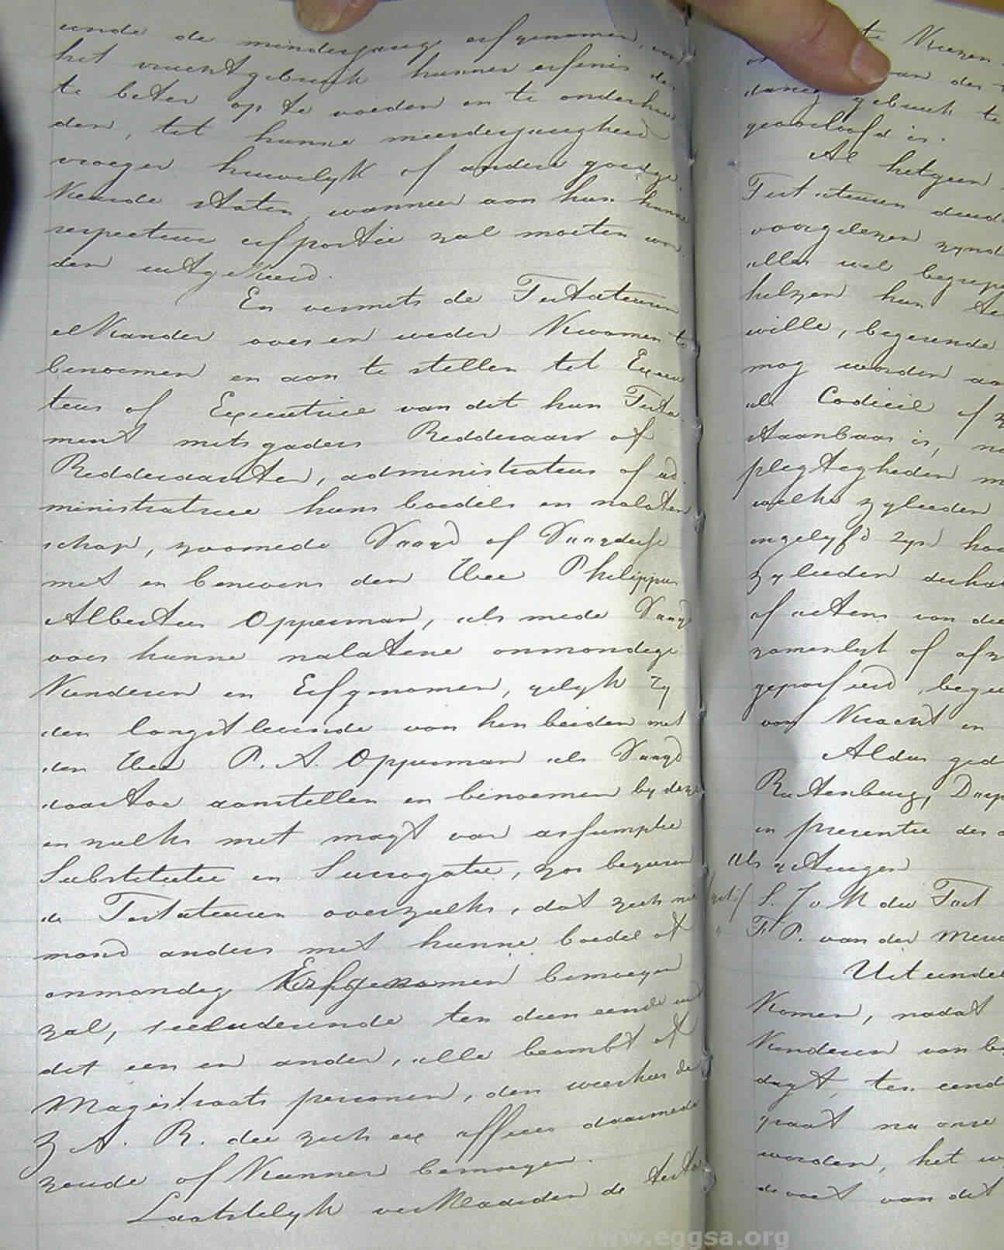 einde de minderjarige erfgenamen, van
het vruchtgebruik hunner erfenis des
te beter op te voeden en te onderhou
den, tot hunne meerderjarigheid
vroeger huwelyk of andere goedge
Keurde staten, wanneer aan hun hunne
respective erfportie zal moeten wor
den uitgekeerd.
En vermits de Testateuren
elkander over en weder Kwamen te
benoemen en aan te stellen tot Execu
teur of Executrice van dit hun Testa
ment mitsgaders Redderaar of
Redderaarster, administrateur of ad
ministratrice huns boedels en nalaten
schap, zoomede Voogd of Voogdesse
met en benevens den Wee Philippus
Albertus Opperman, als mede Voogd
voor hunne nalatene onmondige
Kinderen en Erfgenamen, gelyk zy
den langstleevende van hen beiden met
den Wee P. A. Opperman als Voogd
daartoe aanstellen en benoemen by deze
en zulks met magt van assumptie
Substitutie en Surrogatie, zoo begeeren
de Testateuren overzulks, dat zich nie
mand anders met hunne boedel of
onmondig Erfgenamen bemoeyen
zal, secludeerende ten dien einde uit
dit een en ander, alle beambt of
Magistraats personen, den weesheer de
Z A. R. die zich ex officio daarmede
zoude of Kunnen bemoeyen.
Laatstelyk verklaarden de Testa
te Kiezen
van de
gebruik te
geoorloofd is.
Al hetgeen
Testateuren duid
voorgelezen zynd
alles wel begrep
hebzen hun Te
wille, begerende
mog worden aa
als Codicil of
staanbaar is, no
plegtigheden m
welke zyleeden
ingelyfd zyn ho
zyleeden derha
of actens van de
zamenlyk of afz
gepasseerd, bege
van Kracht en
Aldus ged
Rustenburg, Disp
in presentie des
als getuigen
(get:) S. J. v. M der Tort
" F. P. van der Merw
Uiteinde
Komen, nadat
Kinderen van be
dagt, ten eind
gaat na onze
worden, het w
de voet van dit
www.eggsa.org